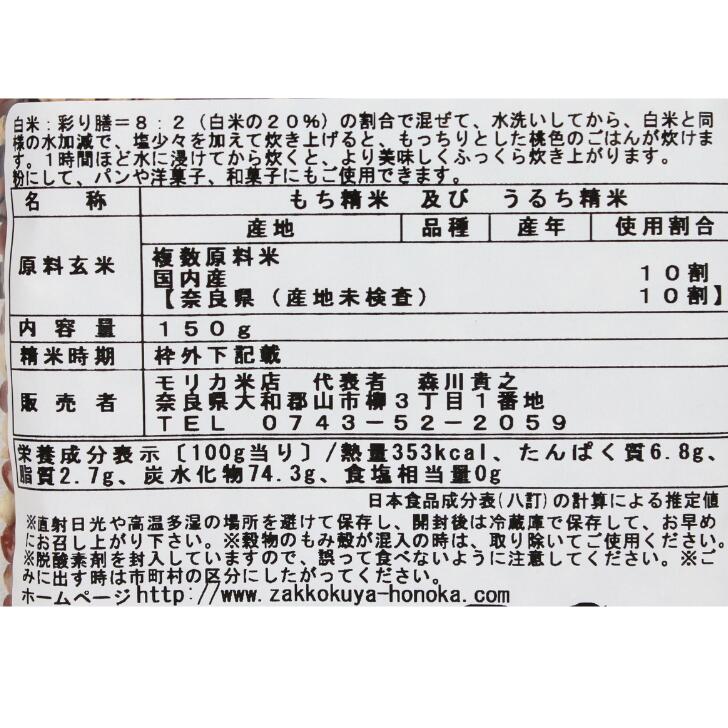 白米：彩り膳＝８：２（白米の２０％）の割合で混ぜて、水洗いしてから、白米と同
様の水加減で、塩少々を加えて炊き上げると、もっちりとした桃色のごはんが炊けま
す。１時間ほど水に浸けてから炊くと、より美味しくふっくら炊き上がります。
粉にして、パンや洋菓子、和菓子にもご使用できます。
名　称　もち精米　及び　うるち精米
原料玄米　産地　品種　産年　使用割合
複数原料米
国内産　１０割
【奈良県（産地未検査）　１０割】
内容量　１５０ｇ
精米時期　枠外下記載
販売者　モリカ米店　代表者　森川貴之
奈良県大和郡山市柳３丁目１番地
ＴＥＬ　０７４３－５２－２０５９
栄養成分表示〔100g当り〕/熱量353kcal、たんぱく質6.8g、
脂質2.7g、炭水化物74.3g、食塩相当量0g
日本食品成分表(八訂)の計算による推定値
※直射日光や高温多湿の場所を避けて保存し、開封後は冷蔵庫で保存して、お早め
にお召し上がり下さい。※穀物のもみ殻が混入の時は、取り除いてご使用ください。
※脱酸素剤を封入していますので、誤って食べないように注意してください。※ご
みに出す時は市町村の区分にしたがってください。
ホームページhttp://www.zakkokuya-honoka.com